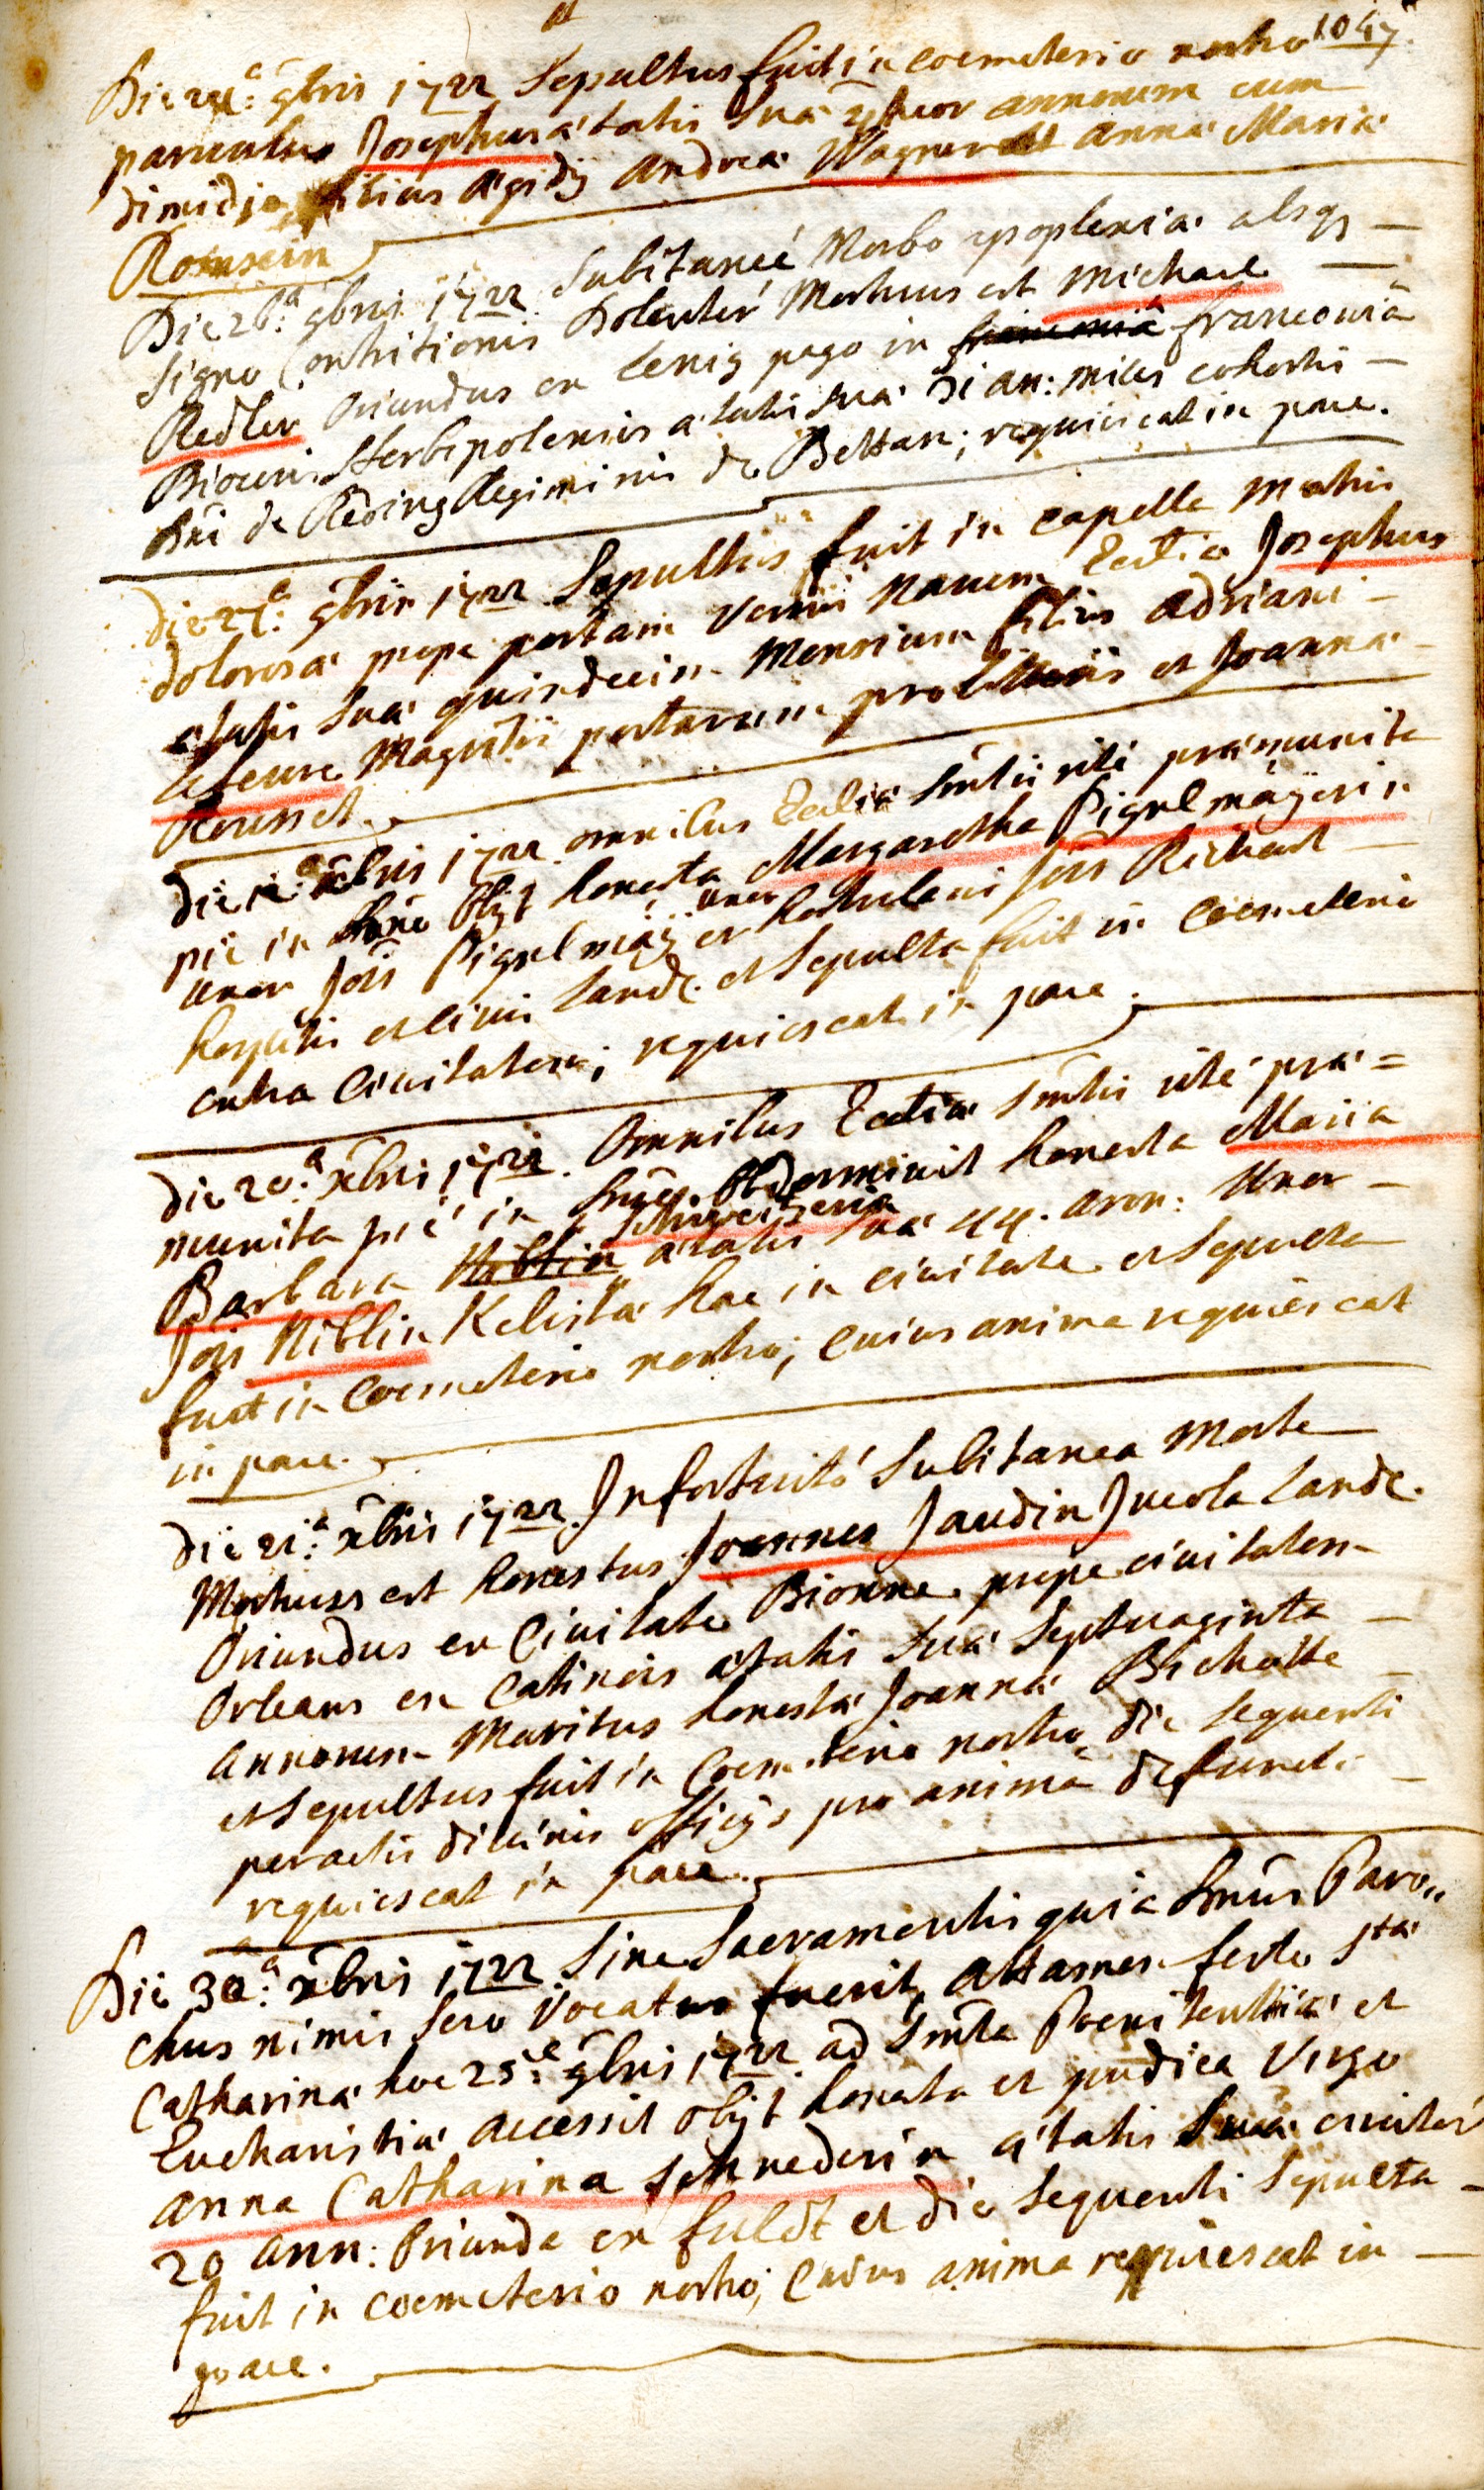 1047
Die 24ᵃ: 9bris 1722 Sepultus fuit in coemeterio nostro
parvulus Josephus ætatis suæ annorum cum
dimidio filius Ægidij Andreæ Wagner et Annæ Mariæ
Die 26ᵃ: 9bris 1722 Subitaneè Morbo apoplexiæ absq
signo Contritionis Dolenter Mortuus est Michael
Redler Oriundus ex Lenig pago in franconiâ
Diocesis Herbipolensis ætatis suæ 31 an: miles cohortis
Dni de Reding Regiminis de Bettan; requiescat in pace.
Die 27ᵃ: 9bris 1722 Sepultus fuit in capella Matris
dolorosæ prope portam versus Navem Eccliæ Josephus
ætatis suæ quindecim Mensium filius Adriani
Lefeure Magistri portarum et Joannæ
Rousset.
Die xbris 1722 omnibus Eccliæ Smtis ritè præmunita
pie in Dno Obijt honesta Margaretha Pigelmäÿerin
uxor Jois Pigelmäÿer Jois Richard
hospitis et civis Landæ. et Sepulta fuit in Coemeterio
extra Civitatem; requiescat in pace.
Die 20ᵃ: xbris 1722. Omnibus Eccliæ Smtis ritè præ=
munita piè in Dno Obdormivit honesta Maria
Schweitzerin
Barbara Niblin ætatis suæ 44. ann: Uxor
Jois Niblin Kelistæ hac in civitate et Sepulta
fuit in Coemeterio nostro; Cuius anima requiescat
in pace.
Die 21ᵃ: xbris 1722. Infortuitò Subitanea Morte
Mortuus est honestus Joannes Jaudin Incola Landæ.
Oriundus ex Civitate Bionne prope civitatem
Orleans ex Catinois ætatis suæ Septuaginta
Annorum Maritus honestæ Joannæ Bichotte
et Sepultus fuit in Coemeterio nostro die sequenti
peractis divinis officijs pro animâ defuncti
requiescat in pace.
Die 30ᵃ: xbris 1722. Sine Sacramentis quia Dnus Paro„
chus nimis sero Vocatus fuerit, Attamen festo Stæ
Catharinæ hoc 25ᵃ: 9bris 1722 ad Smta Poenitentiæ et
Eucharistiæ accessit obijt honesta et pudica Virgo
Anna Catharina Schnederin ætatis suæ circiter
20 Ann: Oriunda ex fuldt et die sequenti Sepulta
fuit in coemeterio nostro; Cuius anima requiescat in
pace.